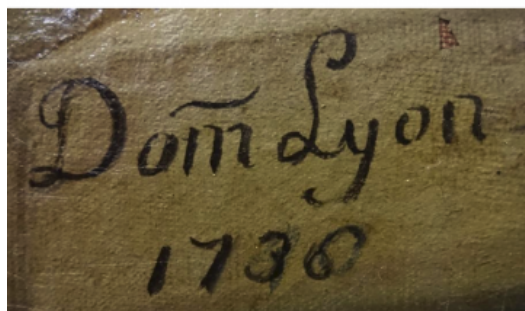 Dom̄ Lyon
1736